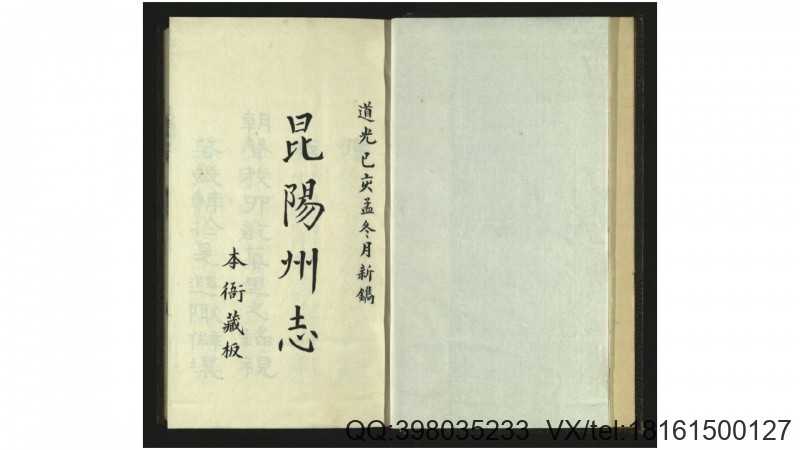 道光己亥孟冬月新鐫
昆陽州志
本衙藏板
QQ:398035233 VX/tel:18161500127